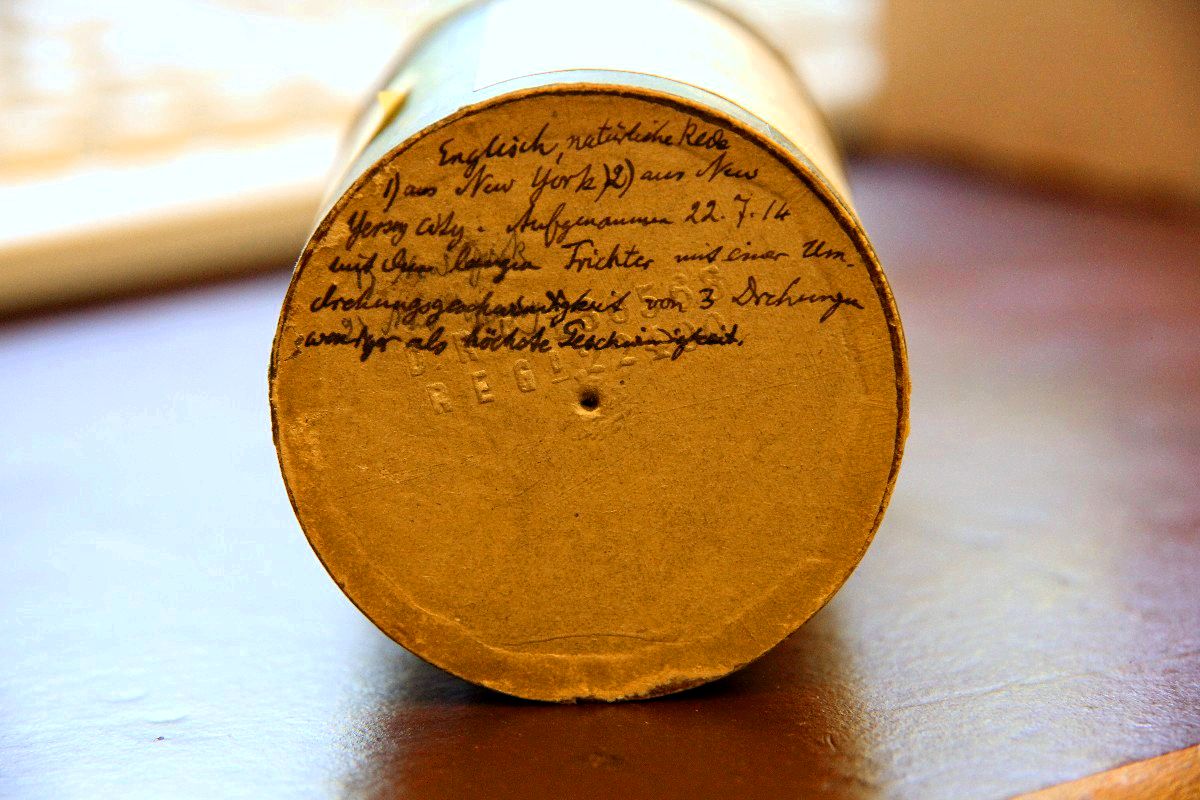 Englisch, natürliche Rede
1) aus New York 2) aus New
Yersey City. Aufgenommen 22.7.14
mit dem langen Trichter mit einer Um-
drehungsgeschwindigkeit von 3 Drehungen
weniger als höchste Geschwindigkeit.
REG